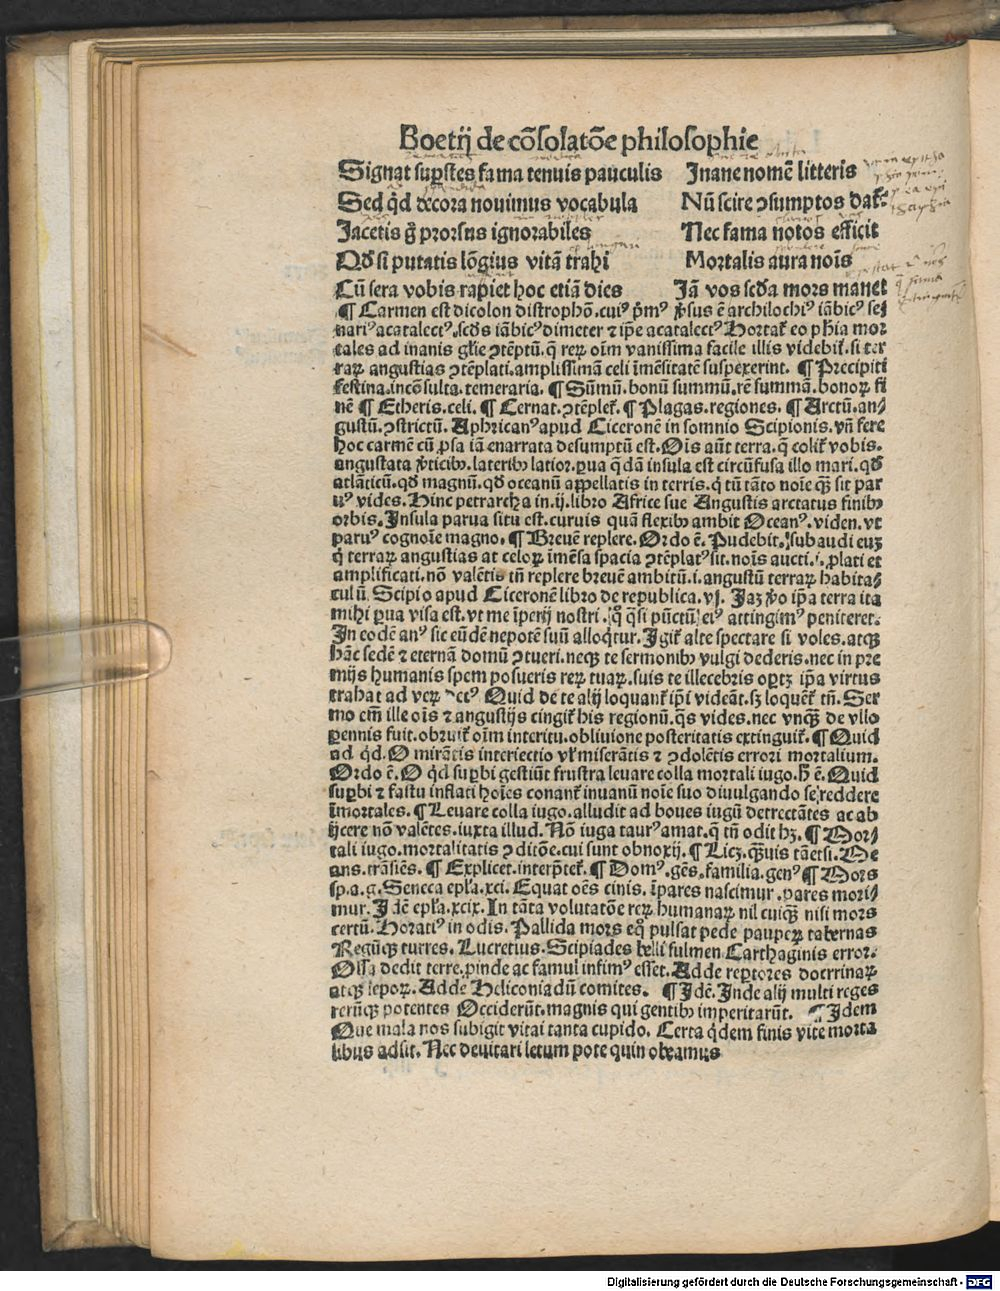 Boetij de cõsolatõe philosophie
Signat suꝑstes fama tenuis pauculis Inane nomē litteris
Sed qͥd decora nouimus vocabula Nū scire ꝯsumptos dat᷑
Iacetis gͦ prorsus ignorabiles Nec fama notos efficit
Qđ si putatis lõgius vitã trahi Mortalis aura noĩs
Cū sera vobis rapiet hoc etiã dies Iã vos scđa mors manet
¶ Carmen est dicolon distrophõ. cuiꝰ pͥmꝰ ꝟsus ē archilochiꝰ iãbicꝰ se/
nariꝰ acatalectꝰ. scđs iãbicꝰ dimeter ⁊ ip̃e acatalectꝰ Hortat᷑ eo ph̃ia mor
tales ad inanis gl̃ie ꝯtēptū. q̃ reꝝ oīm vanissima facile illis videbit᷑. si ter
raꝝ angustias ꝯtēplati. amplissimã celi īmēsitatē suspexerint. ¶ Precipiti
festina. incõsulta. temeraria. ¶ Sūmū. bonū summū. rē summã. bonoꝝ fi
nē ¶ Etheris. celi. ¶ Cernat. ꝯtēplet᷑. ¶ Plagas. regiones. ¶ Arctū. an/
gustū. ꝯstrictū. Aphricanꝰ apud Ciceronē in somnio Scipionis. vñ fere
hoc carmē cū ꝓsa iã enarrata desumptū est. Oīs aūt terra. q̃ colit᷑ vobis.
angustata ꝟticibꝫ. lateribꝫ latior. ꝑua q̃dã insula est circūfusa illo mari. qđ
atlãticū. qđ magnū. qđ oceanū appellatis in terris. qͥ tñ tãto noīe q̃ꝫ sit par
uꝰ vides. Hinc petrarcha in .ij. libro Africe sue Angustis arctatus finibꝫ
orbis. Insula parua situ est. curuis quã flexibꝫ ambit Oceanꝰ. viden. vt
paruꝰ cognoīe magno. ¶ Breuē replere. Ordo ē. Pudebit. subaudi euꝫ
qͥ terraꝝ angustias at celoꝝ īmēsa spacia ꝯtēplatꝰ sit. noīs aucti .i. ꝓlati et
amplificati. nõ valētis tñ replere breuē ambitū .i. angustū terraꝝ habita/
culū. Scipio apud Ciceronē libro de republica .vj. Iaꝫ ꝟo ip̃a terra ita
mihi ꝑua visa est. vt me īperij nostri. qͦ q̃si pūctū eiꝰ attingimꝰ peniteret.
In eodē anꝰ sic eūdē nepotē suū alloqͥtur. Igit᷑ alte spectare si voles. atqꝫ
hãc sedē ⁊ eternã domū ꝯtueri. neqꝫ te sermonibꝫ vulgi dederis. nec in pre
mijs humanis spem posueris reꝝ tuaꝝ. suis te illecebris oꝑtꝫ ip̃a virtus
trahat ad veꝝ Quid de te alij loquant᷑ ip̃i videãt. sꝫ loquēt᷑ tñ. Ser
mo em̃ ille oīs ⁊ angustijs cingit᷑ his regionū. q̃s vides. nec vnqꝫ de vllo
pennis fuit. obruit᷑ oīm interitu. obliuione posteritatis extinguit᷑. ¶ Quid
ad qͥd. O mirãtis interiectio vl̃ miserãtis ⁊ ꝯdolētis errori mortalium.
Ordo ē. O qͥd suꝑbi gestiūt frustra leuare colla mortali iugo. h̃ ē. Quid
suꝑbi ⁊ fastu inflati hoīes conant᷑ inuanū noīe suo diuulgando se reddere
īmortales. ¶ Leuare colla iugo. alludit ad boues iugū detrectãtes ac ab
ijcere nõ valētes. iuxta illud. Nõ iuga taurꝰ amat. q̃ tñ odit hꝫ. ¶ Mor/
tali iugo. mortalitatis ꝯditõe. cui sunt obnoxij. ¶ Licꝫ. q̃ꝫuis tãetsi. Me
ans. trãsiēs. ¶ Explicet. interp̃tet᷑. ¶ Domꝰ. gēs. familia. genꝰ ¶ Mors
sp. a. g. Seneca ep̃la. xci. Equat oēs cinis. īpares nascimur. pares mori/
mur. Idē ep̃la. xcix. In tãta volutatõe reꝝ humanaꝝ nil cuiqꝫ nisi mors
certū. Horatiꝰ in odis. Pallida mors eqͦ pulsat pede paupeꝝ tabernas
Regūqꝫ turres. Lucretius. Scipiades belli fulmen Carthaginis error.
Ossa dedit terre. ꝓinde ac famul infimꝰ esset. Adde reꝑtores doctrinaꝝ
atqꝫ lepoꝝ. Adde Heliconiadū comites. ¶ Idē. Inde alij multi reges
rerūqꝫ potentes Occiderūt. magnis qui gentibꝫ imperitarūt. ¶ Idem
Que mala nos subigit vitai tanta cupido. Certa qͥdem finis vite morta
libus adsit. Nec deuitari letum pote quin obeamus
Digitalisierung gefördert durch die Deutsche Forschungsgemeinschaft - DFG